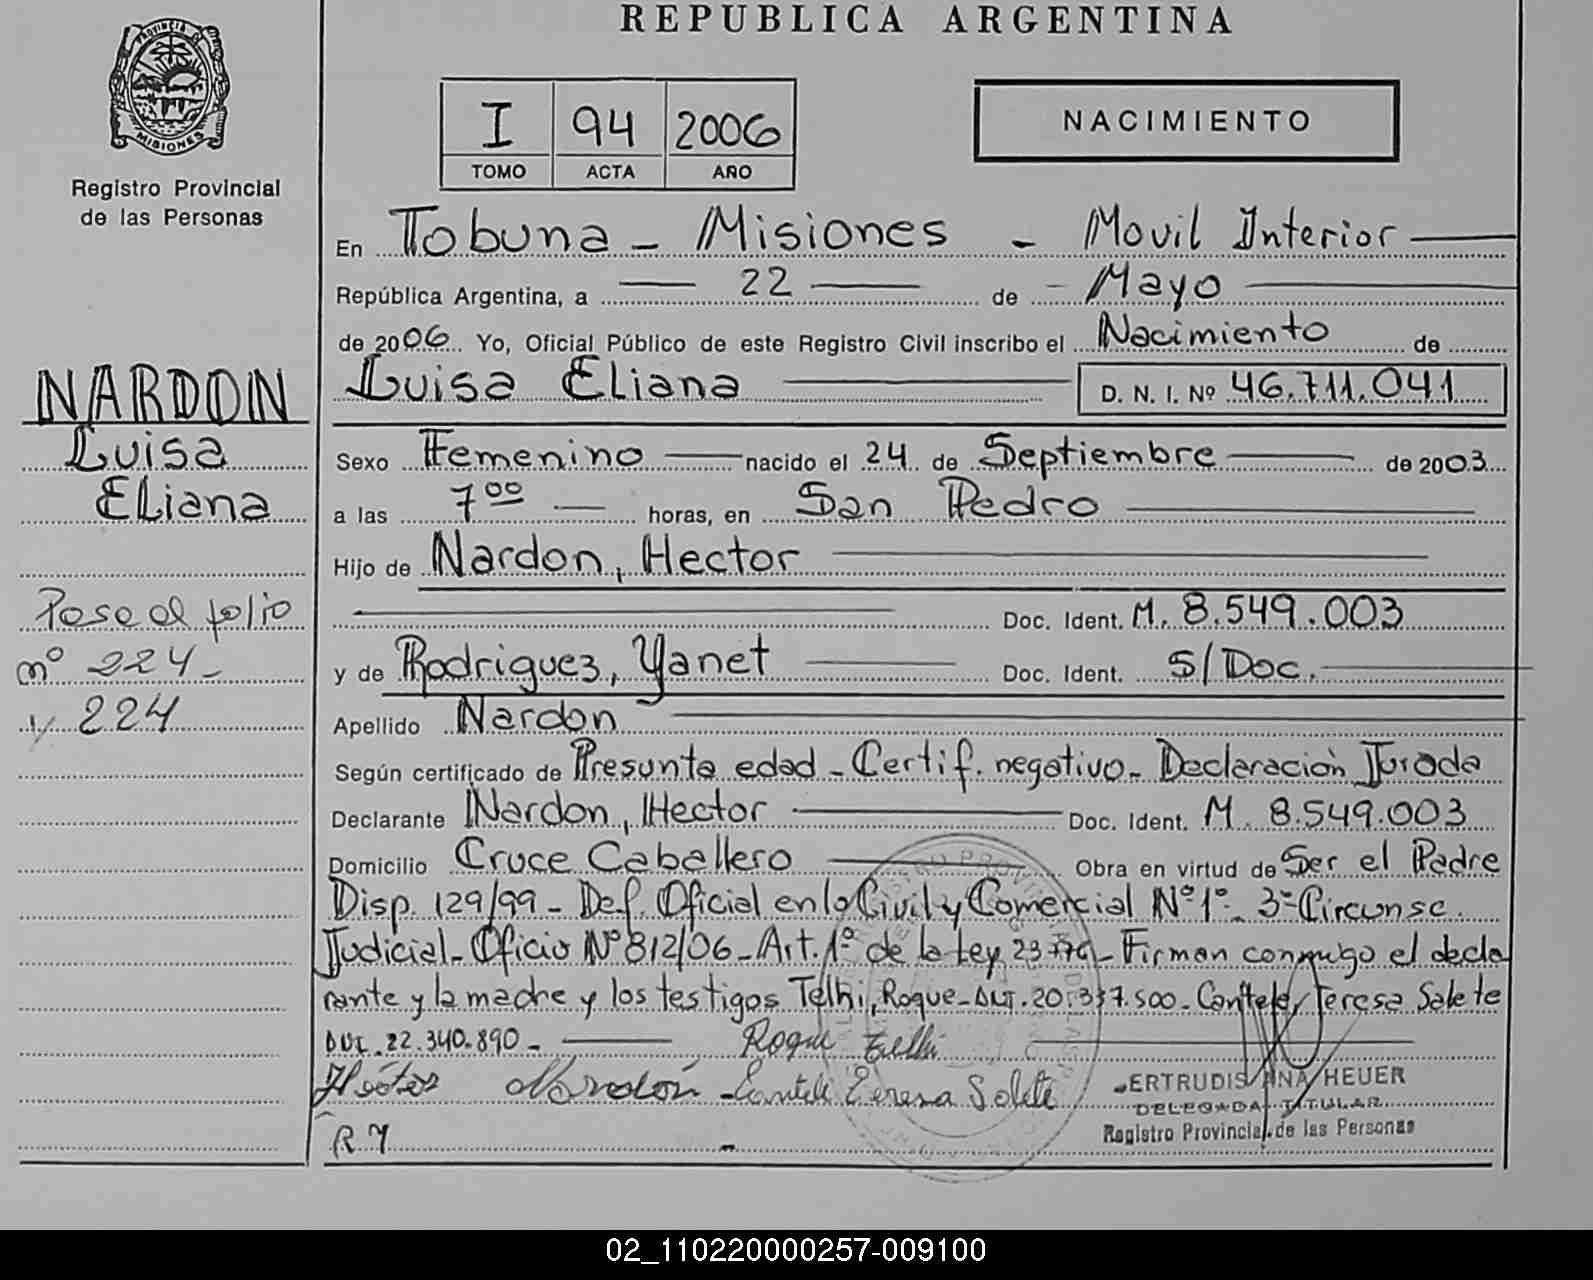 REPUBLICA ARGENTINA
PROVINCIA DE
MISIONES
Registro Provincial
de las Personas
I 94 2006
TOMO ACTA AÑO
NACIMIENTO
En Tobuna - Misiones - Movil Interior
República Argentina, a 22 de Mayo
de 2006. Yo, Oficial Público de este Registro Civil inscribo el Nacimiento de
Luisa Eliana D. N. I. Nº 46.711.041
Sexo Femenino nacido el 24 de Septiembre de 2003
a las 7 00 horas, en San Pedro
Hijo de Nardon, Hector
Doc. Ident. M. 8.549.003
y de Rodriguez, Yanet Doc. Ident. S/Doc.
Apellido Nardon
Según certificado de Presunta edad - Certif. negativo - Declaración Jurada
Declarante Nardon, Hector Doc. Ident. M. 8.549.003
Domicilio Cruce Caballero Obra en virtud de Ser el Padre
Disp. 129/99 - Def. Oficial en lo Civil y Comercial Nº 1º - 3º Circunsc.
Judicial - Oficio Nº 812/06 - Art. 1º de la Ley 23776 - Firman conmigo el decla
rante y la madre y los testigos Telhi, Roque - DNI. 20.337.500 - Cantele, Teresa Salete
DNI. 22.340.890 -
Roque Telhi
Héctor Nardón - Cantele Teresa Salete
R Y -
ERTRUDIS ANA HEUER
DELEGADA TITULAR
Registro Provincial de las Personas
NARDON
Luisa
Eliana
Pase al folio
nº 224 -
y 224
02_110220000257-009100